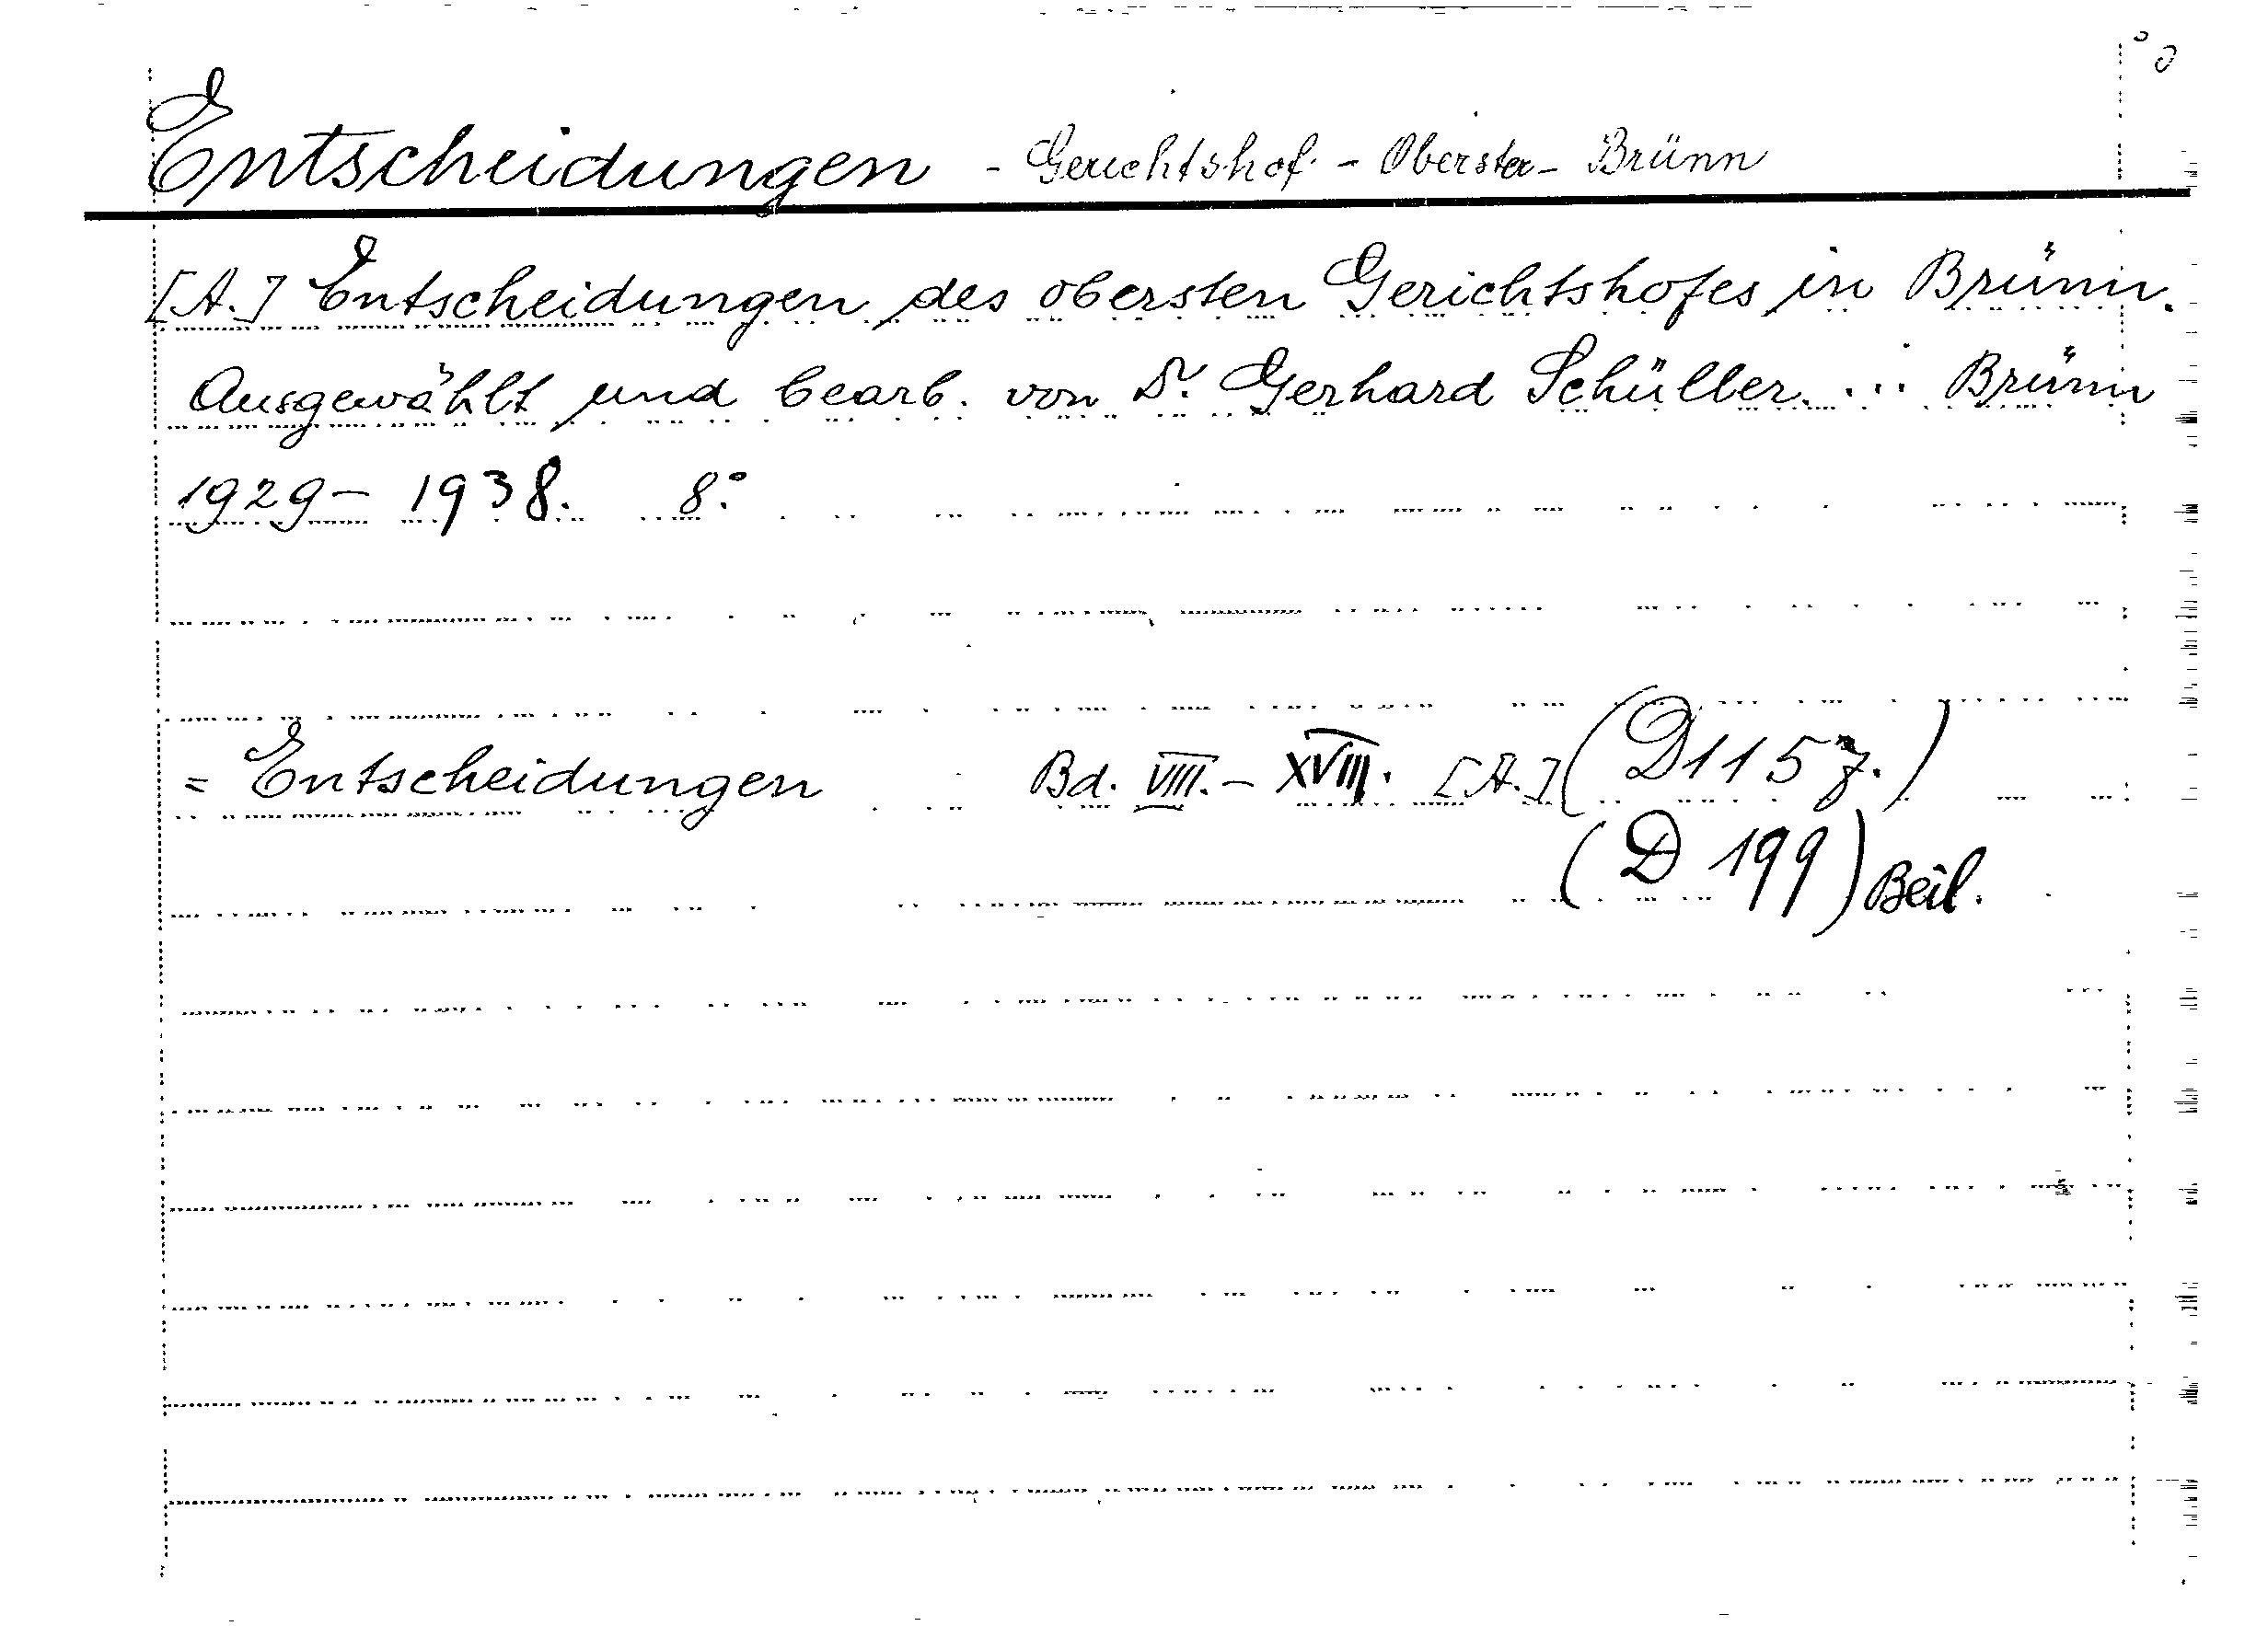 Entscheidungen - Gerichtshof - Oberster - Brünn
[A.] Entscheidungen des obersten Gerichtshofes in Brünn.
Ausgewählt und bearb. von Dr. Gerhard Schüller. ... Brünn
1929 - 1938. 8°.
= Entscheidungen Bd. VIII. - XVIII. [A.] (D 115 7.)
(D 199) Beil.